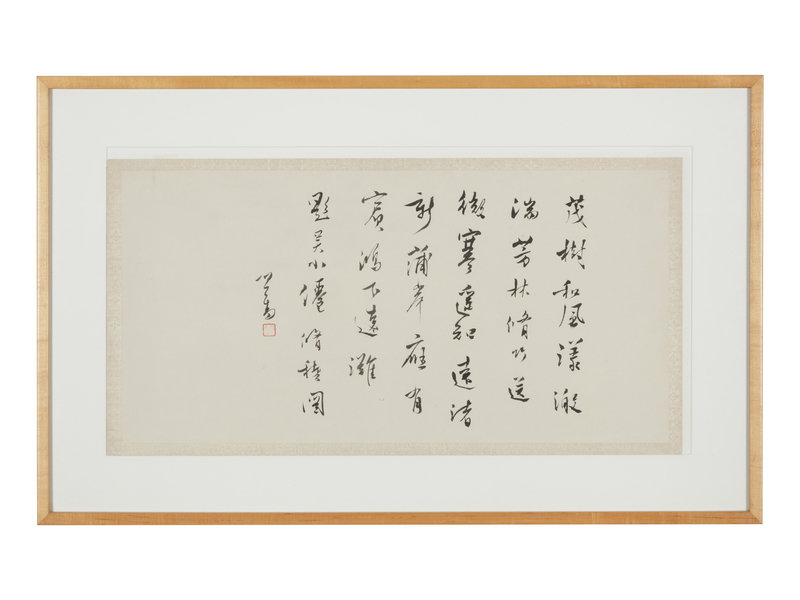 茂樹和風漾激
湍芳林脩竹送
微寒遥知遠渚
新蒲岸應有
賓鴻下遠灘
題吴小僊脩禊圖
心畬